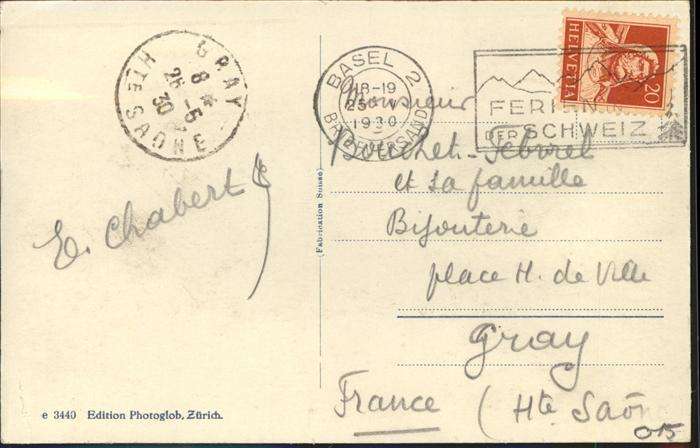 GRAY
8 *
26-5
30
HTE SAONE
BASEL 2
18-19
25
1930
BRIEFVERSAND
FERIEN
DER SCHWEIZ
HELVETIA
20
Monsieur
et sa famille
Bijouterie
place H. de Ville
Gray
France (Hte Saôn
E. Chabert
(Fabrication Suisse)
e 3440 Edition Photoglob, Zürich.
015